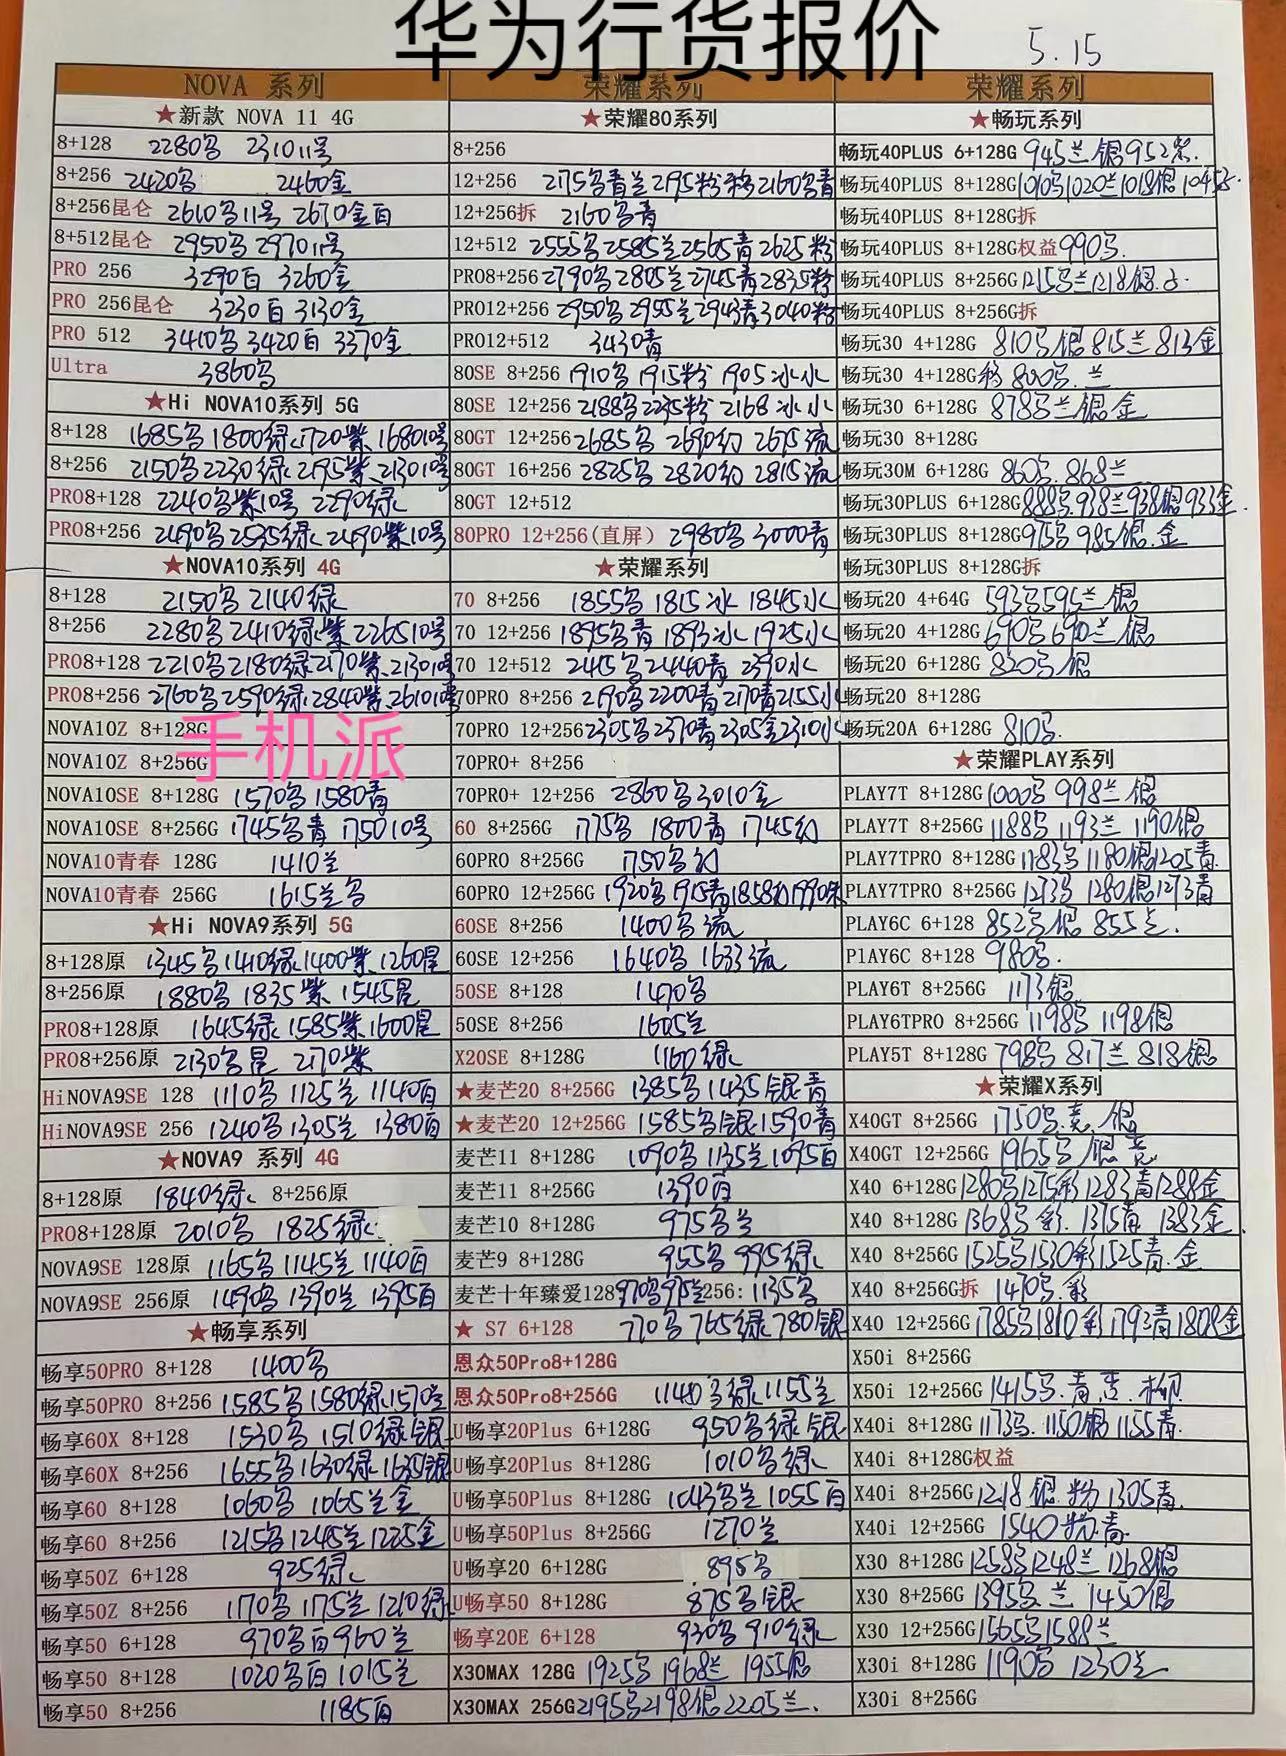 华为行货报价
5.15
NOVA 系列
★新款 NOVA 11 4G
8+128 2280 2310 11号
8+256 2420 2460金
8+256昆仑 2610 11号 2670金白
8+512昆仑 2950 2970 11号
PRO 256 3290白 3260金
PRO 256昆仑 3230白 3130金
PRO 512 3410 3420白 3370金
Ultra 3860
★Hi NOVA10系列 5G
8+128 1685 1800绿 1720紫 1680 10号
8+256 2150 2230绿 2195紫 2130 10号
PRO8+128 2240 紫10号 2290绿
PRO8+256 2490 2535绿 2490紫10号
★NOVA10系列 4G
8+128 2150 2140绿
8+256 2280 2410绿紫 2265 10号
PRO8+128 2210 2180绿 2170紫 2130 10号
PRO8+256 2760 2590绿 2840紫 2610 10号
NOVA10Z 8+128G
手机派
NOVA10Z 8+256G
NOVA10SE 8+128G 1570 1580青
NOVA10SE 8+256G 1745 青 1750 10号
NOVA10青春 128G 1410兰
NOVA10青春 256G 1615兰
★Hi NOVA9系列 5G
8+128原 1345 1410绿 1400紫 1260星
8+256原 1880 1835紫 1545星
PRO8+128原 1645绿 1585紫 1600星
PRO8+256原 2130 星 2170紫
HiNOVA9SE 128 1110 1125兰 1140白
HiNOVA9SE 256 1240 1305兰 1380白
★NOVA9 系列 4G
8+128原 1840绿 8+256原
PRO8+128原 2010 1825绿
NOVA9SE 128原 1165 1145兰 1140白
NOVA9SE 256原 1490 1390兰 1395白
★畅享系列
畅享50PRO 8+128 1400
畅享50PRO 8+256 1585 1580绿 1570兰
畅享60X 8+128 1530 1510绿银
畅享60X 8+256 1655 1630绿 1635银
畅享60 8+128 1060 1065兰金
畅享60 8+256 1215 1245兰 1225金
畅享50Z 6+128 925绿
畅享50Z 8+256 1170 1175兰 1210绿
畅享50 6+128 970 白 960兰
畅享50 8+128 1020 白 1015兰
畅享50 8+256 1185白
荣耀系列
★荣耀80系列
8+256
12+256 2175 青兰 2195粉 2160 青
12+256拆 2160 青
12+512 2555 2585兰 2565青 2625粉
PRO8+256 2790 2805兰 2745青 2835粉
PRO12+256 2950 2955兰 2943青 3040粉
PRO12+512 3430青
80SE 8+256 1910 1915粉 1905冰水
80SE 12+256 2188 2235粉 2168冰水
80GT 12+256 2685 2690 2675流
80GT 16+256 2825 2820 2815流
80GT 12+512
80PRO 12+256(直屏) 2980 3000青
★荣耀系列
70 8+256 1855 1815冰 1845水
70 12+256 1895 青 1893冰 1925水
70 12+512 2445 2440青 2390水
70PRO 8+256 2190 2200青 2170青 2155水
70PRO 12+256 2305 2370青 2305金 2310水
70PRO+ 8+256
70PRO+ 12+256 2860 3010金
60 8+256G 1775 1800青 1745
60PRO 8+256G 1750
60PRO 12+256G 1920 1915青 1858 1990
60SE 8+256 1400 流
60SE 12+256 1640 1633流
50SE 8+128 1470
50SE 8+256 1605兰
X20SE 8+128G 1160绿
★麦芒20 8+256G 1385 1435银青
★麦芒20 12+256G 1585 银 1590青
麦芒11 8+128G 1090 1135兰 1095白
麦芒11 8+256G 1390白
麦芒10 8+128G 975 兰
麦芒9 8+128G 955 995绿
麦芒十年臻爱128 970 975兰 256: 1135
★ S7 6+128 770 765绿 780银
恩众50Pro8+128G
恩众50Pro8+256G 1140 绿 1155兰
U畅享20Plus 6+128G 950 绿银
U畅享20Plus 8+128G 1010 绿
U畅享50Plus 8+128G 1043 兰 1055白
U畅享50Plus 8+256G 1270兰
U畅享20 6+128G 895
U畅享50 8+128G 875 银
畅享20E 6+128 930 910绿
X30MAX 128G 1925 1968兰 1955银
X30MAX 256G 2195 2198银 2205兰
荣耀系列
★畅玩系列
畅玩40PLUS 6+128G 945兰银 952紫
畅玩40PLUS 8+128G 1010 1020兰 1018银 1045
畅玩40PLUS 8+128G拆
畅玩40PLUS 8+128G权益 990
畅玩40PLUS 8+256G 1215 兰 1218银
畅玩40PLUS 8+256G拆
畅玩30 4+128G 810 银 815兰 813金
畅玩30 4+128G移 800 兰
畅玩30 6+128G 878 兰银金
畅玩30 8+128G
畅玩30M 6+128G 860 868兰
畅玩30PLUS 6+128G 888 938兰 938银 933金
畅玩30PLUS 8+128G 975 985银金
畅玩30PLUS 8+128G拆
畅玩20 4+64G 593 595兰银
畅玩20 4+128G 690 690兰银
畅玩20 6+128G 820 银
畅玩20 8+128G
畅玩20A 6+128G 810
★荣耀PLAY系列
PLAY7T 8+128G 1000 998兰银
PLAY7T 8+256G 1188 1193兰 1190银
PLAY7TPRO 8+128G 1183 1180银 1205青
PLAY7TPRO 8+256G 1273 1280银 1273青
PLAY6C 6+128 852 银 855兰
PlAY6C 8+128 980
PLAY6T 8+256G 1173银
PLAY6TPRO 8+256G 1198 1198银
PLAY5T 8+128G 798 817兰 818银
★荣耀X系列
X40GT 8+256G 1750 竞银
X40GT 12+256G 1965 银竞
X40 6+128G 1280 1275彩 1283青 1288金
X40 8+128G 1368 彩 1375青 1383金
X40 8+256G 1525 1530彩 1525青金
X40 8+256G拆 1470 彩
X40 12+256G 1785 1810彩 1793青 1808金
X50i 8+256G
X50i 12+256G 1415 青 柳
X40i 8+128G 1173 1150银 1155青
X40i 8+128G权益
X40i 8+256G 1218银粉 1305青
X40i 12+256G 1540粉青
X30 8+128G 1258 1248兰 1268银
X30 8+256G 1395 兰 1450银
X30 12+256G 1565 1588兰
X30i 8+128G 1190 1230兰
X30i 8+256G